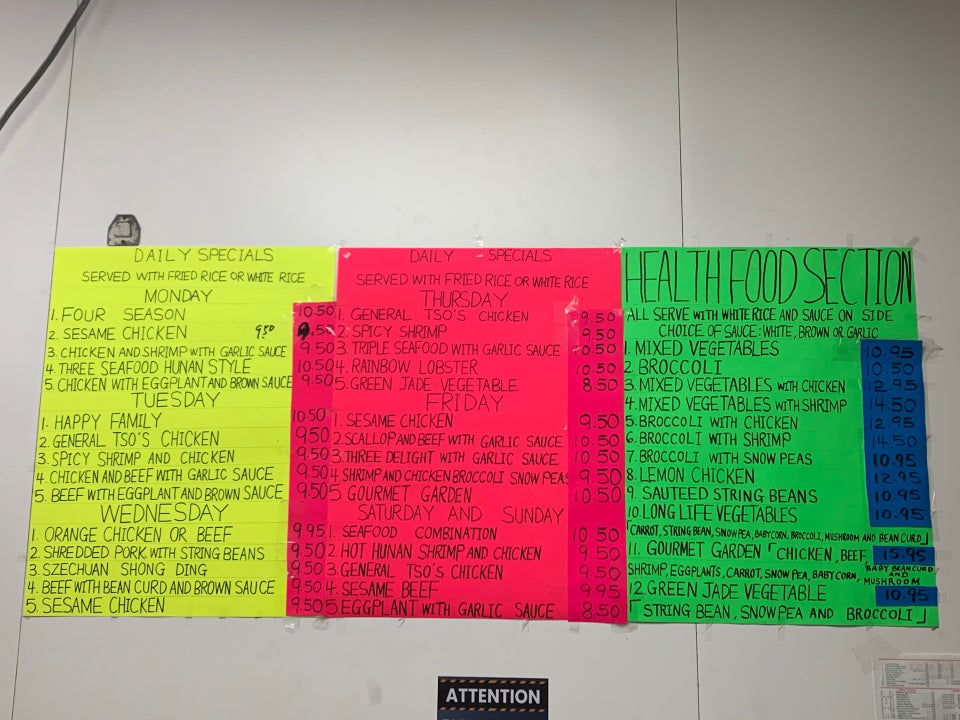 DAILY SPECIALS
SERVED WITH FRIED RICE OR WHITE RICE
MONDAY
1. FOUR SEASON 10.50
2. SESAME CHICKEN 9.50 9.50
3. CHICKEN AND SHRIMP WITH GARLIC SAUCE 9.50
4. THREE SEAFOOD HUNAN STYLE 10.50
5. CHICKEN WITH EGGPLANT AND BROWN SAUCE 9.50
TUESDAY
1. HAPPY FAMILY 10.50
2. GENERAL TSO'S CHICKEN 9.50
3. SPICY SHRIMP AND CHICKEN 9.50
4. CHICKEN AND BEEF WITH GARLIC SAUCE 9.50
5. BEEF WITH EGGPLANT AND BROWN SAUCE 9.50
WEDNESDAY
1. ORANGE CHICKEN OR BEEF 9.95
2. SHREDDED PORK WITH STRING BEANS 9.50
3. SZECHUAN SHONG DING 9.50
4. BEEF WITH BEAN CURD AND BROWN SAUCE 9.50
5. SESAME CHICKEN 9.50
DAILY SPECIALS
SERVED WITH FRIED RICE OR WHITE RICE
THURSDAY
1. GENERAL TSO'S CHICKEN 9.50
2. SPICY SHRIMP 9.50
3. TRIPLE SEAFOOD WITH GARLIC SAUCE 10.50
4. RAINBOW LOBSTER 10.50
5. GREEN JADE VEGETABLE 8.50
FRIDAY
1. SESAME CHICKEN 9.50
2. SCALLOP AND BEEF WITH GARLIC SAUCE 10.50
3. THREE DELIGHT WITH GARLIC SAUCE 10.50
4. SHRIMP AND CHICKEN BROCCOLI SNOW PEAS 9.50
5. GOURMET GARDEN 10.50
SATURDAY AND SUNDAY
1. SEAFOOD COMBINATION 10.50
2. HOT HUNAN SHRIMP AND CHICKEN 9.50
3. GENERAL TSO'S CHICKEN 9.50
4. SESAME BEEF 9.95
5. EGGPLANT WITH GARLIC SAUCE 8.50
HEALTH FOOD SECTION
ALL SERVE WITH WHITE RICE AND SAUCE ON SIDE
CHOICE OF SAUCE: WHITE, BROWN OR GARLIC
1. MIXED VEGETABLES 10.95
2. BROCCOLI 10.50
3. MIXED VEGETABLES WITH CHICKEN 12.95
4. MIXED VEGETABLES WITH SHRIMP 14.50
5. BROCCOLI WITH CHICKEN 12.95
6. BROCCOLI WITH SHRIMP 14.50
7. BROCCOLI WITH SNOW PEAS 10.95
8. LEMON CHICKEN 12.95
9. SAUTEED STRING BEANS 10.95
10. LONG LIFE VEGETABLES 10.95
「CARROT, STRING BEAN, SNOW PEA, BABYCORN, BROCCOLI, MUSHROOM AND BEAN CURD」
11. GOURMET GARDEN「CHICKEN, BEEF 15.95
SHRIMP, EGGPLANTS, CARROT, SNOW PEA, BABY CORN, BABY BEAN CURD AND MUSHROOM
12. GREEN JADE VEGETABLE 10.95
「STRING BEAN, SNOW PEA AND BROCCOLI」
ATTENTION